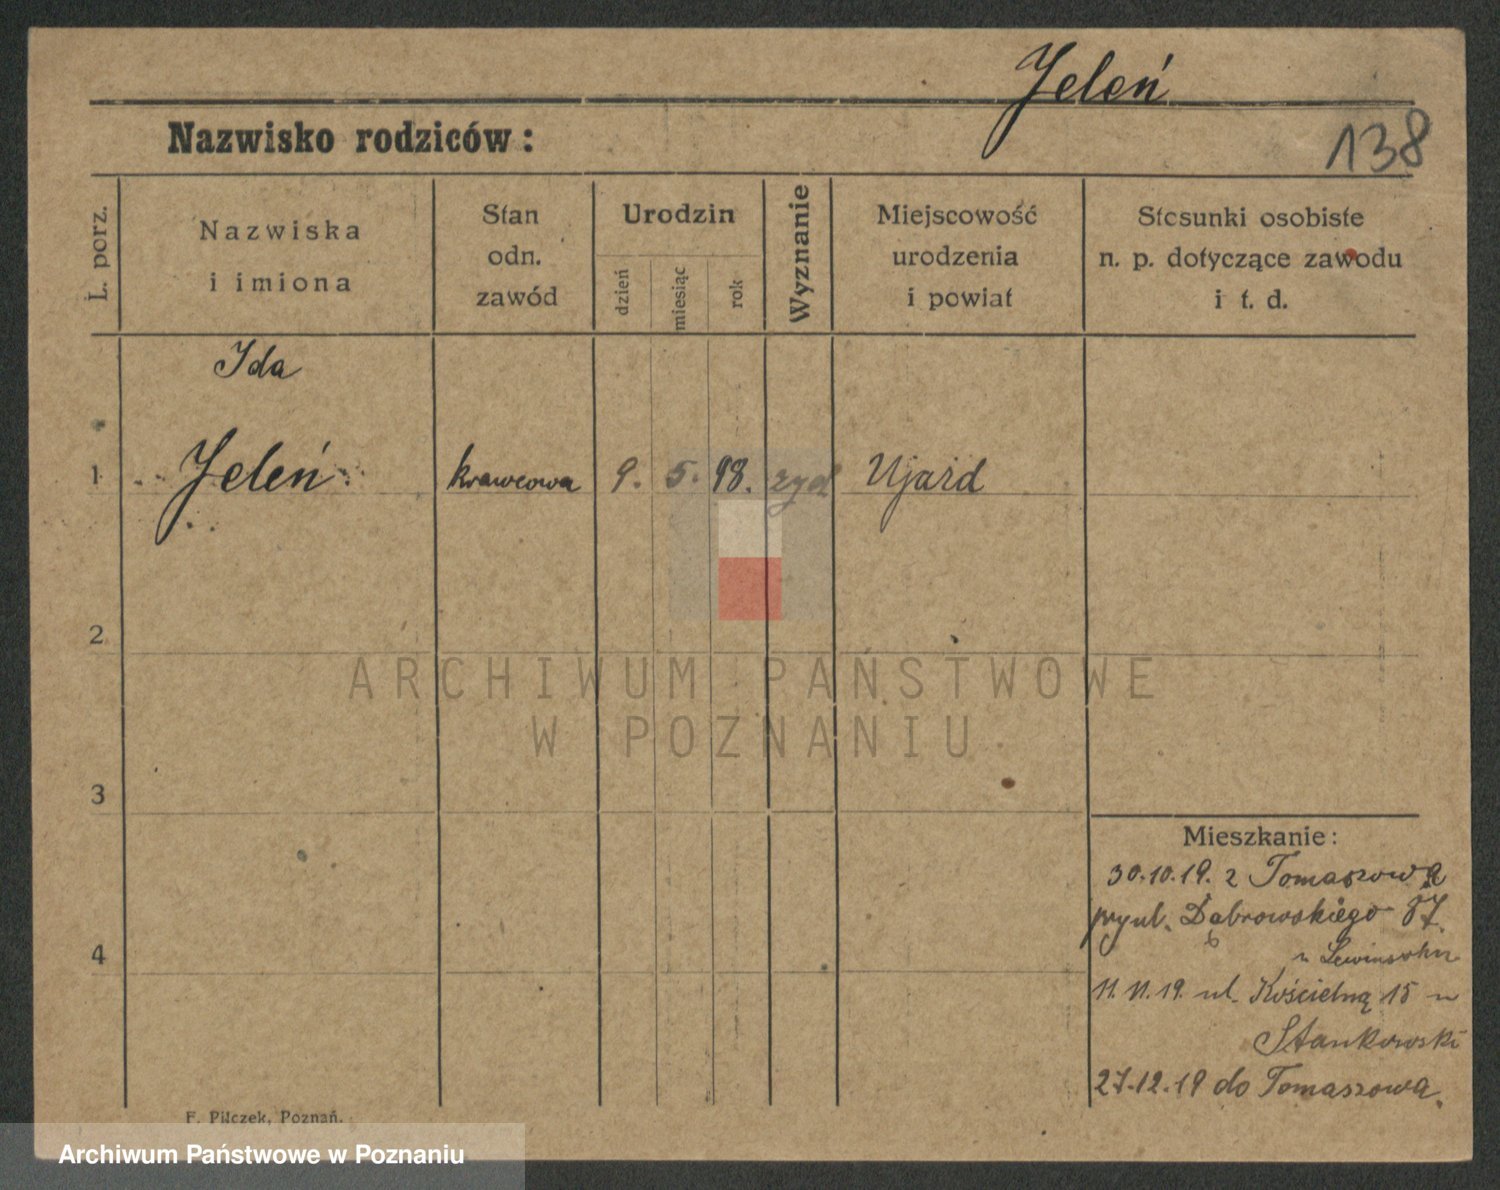 Jeleń
138
Nazwisko rodziców:
L. porz.
Nazwiska
i imiona
Stan
odn.
zawód
Urodzin
dzień
miesiąc
rok
Wyznanie
Miejscowość
urodzenia
i powiat
Stosunki osobiste
n. p. dotyczące zawodu
i t. d.
Ida
1 Jeleń krawcowa 9. 5. 98. żyd Ujazd
2
ARCHIWUM PAŃSTWOWE
W POZNANIU
3
Mieszkanie:
30.10.19. z Tomaszowa
przy ul. Dąbrowskiego 87.
u Lewinsohn
4
11.11.19. ul. Kościelną 15 u
Stankowski
27.12.19 do Tomaszowa.
F. Pilczek, Poznań.
Archiwum Państwowe w Poznaniu